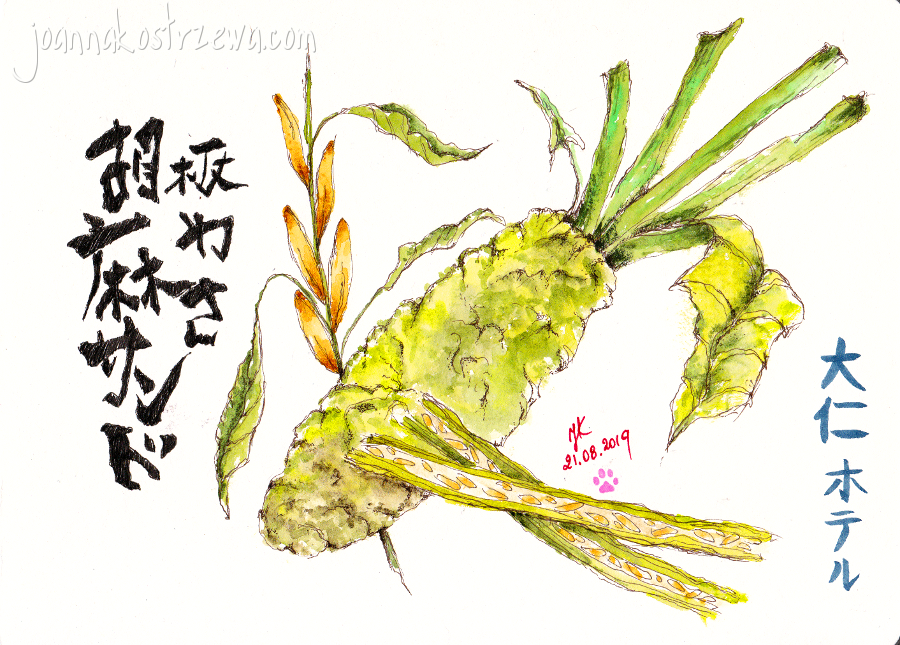 joannakostrzewa.com
板わさ
胡麻サンド
JK
21.08.2019
大仁 ホテル